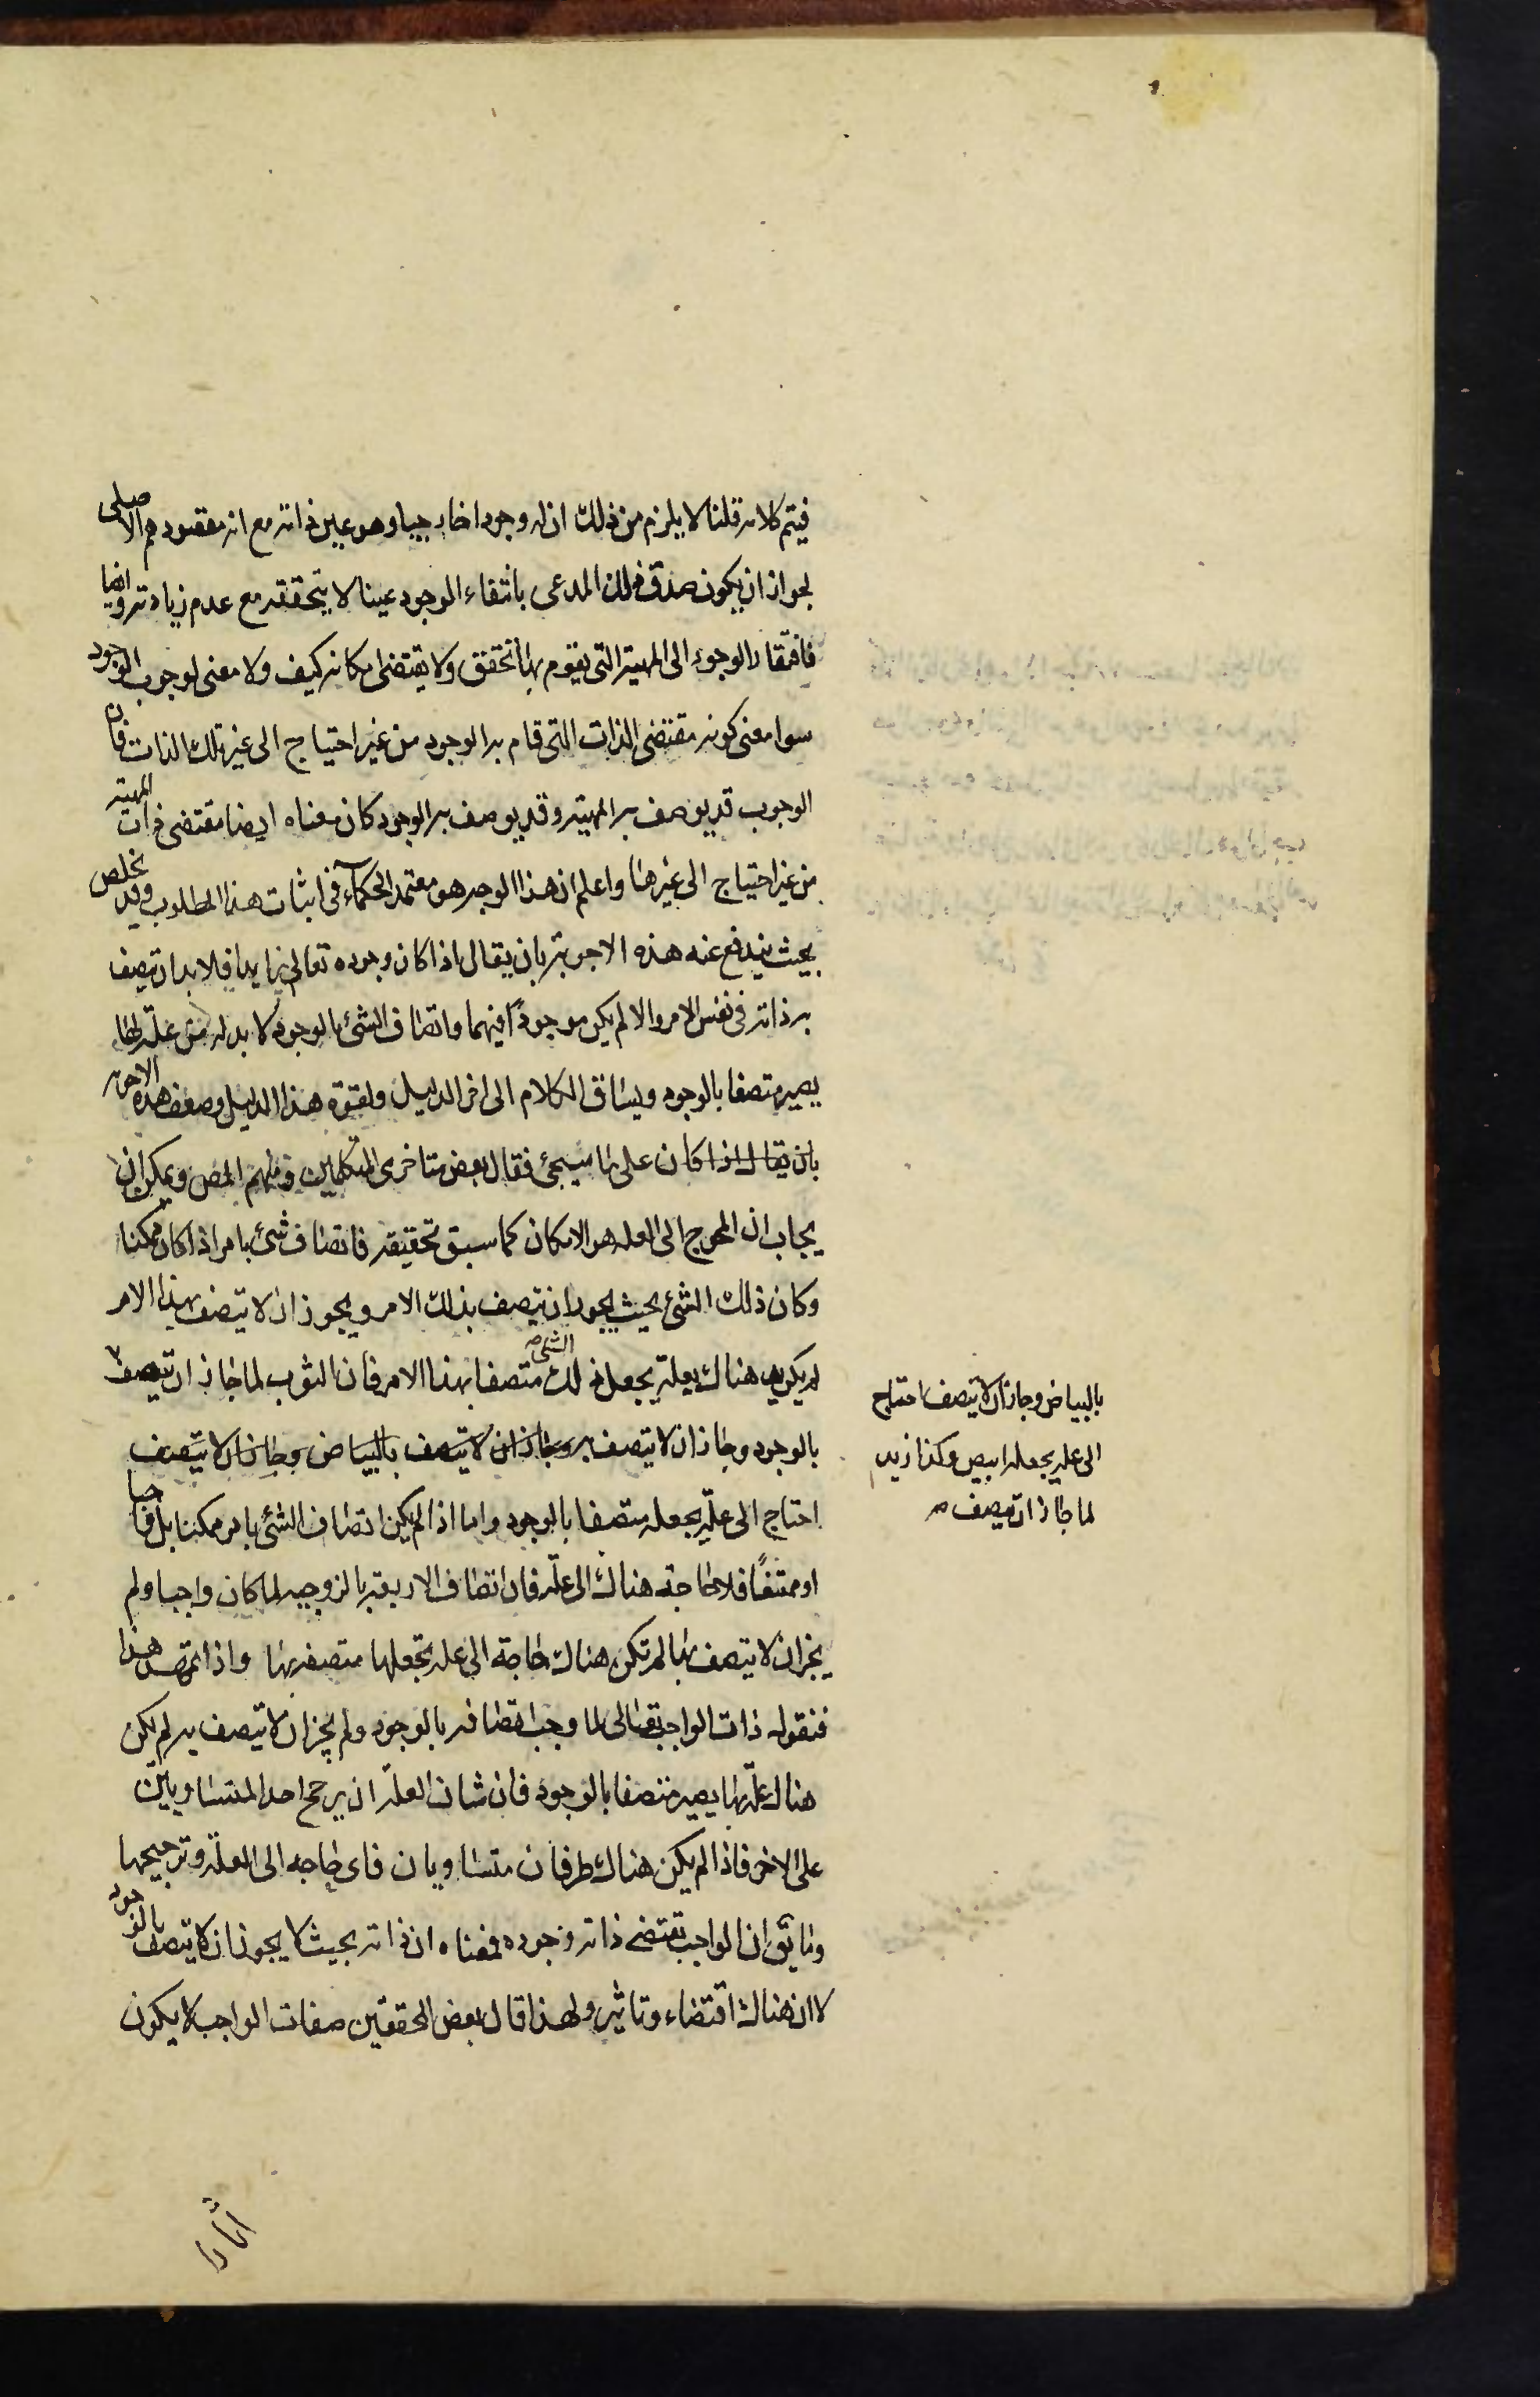 فيتم كلامه قلنا لا يلزم من ذلك ان له وجودا خارجيا وهو عين ذاته مع انه مقصودهم الاصلى
لجواز ان يكون صدق ذلك المدعى بانتفاء الوجود عينا لا يتحققه مع عدم زيادته وايضا
فافتقار الوجود الى المهية التى يقوم بها تحقق ولا يقتضى امكانه كيف ولا معنى لوجوب الوجود
سوا معنى كونه مقتضى الذات التى قام به الوجود من غير احتياج الى غير تلك الذات فان
الوجوب قد يوصف به المهية وقد يوصف به الوجود كان معناه ايضا مقتضى ذات المهية
من غير احتياج الى غيرها واعلم ان هذا الوجه هو معتمد الحكماء فى اثبات هذا المطلوب وقد يخلص
بحيث يندفع عنه هذه الاجوبة بان يقال اذا كان وجوده تعالى زايدا فلا بد ان تيصف
به ذاته فى نفس الامر والا لم يكن موجودًا فيهما واتصاف الشئ بالوجود لا بد له من علّة بها
يصير متصفا بالوجود ويساق الكلام الى اخر الدليل ولقوة هذا الدليل وضعف هذه الاجوبه
بان يقال اذا كان على ما سيجئ فقال بعض متاخرى المتكلمين ومنهم المص ويمكن ان
يجاب ان المحوج الى العله هو الامكان كما سبق تحقيقه فاتصاف شئ بامر اذا كان ممكنا
وكان ذلك الشئ بحيث يجوز ان يتصف بذلك الامر ويجوز ان لا يتصف بهذا الامر
لم يكن بد هناك بعلة يجعل ذلك الشئ متصفا بهذا الامر فان الثوب لما جاز ان تيصف
بالبياض وجاز ان لا يتصف احتاج
الى عله يجعله ابيض وكذا زيد
لما جاز ان تيصف صح
بالوجود وجاز ان لا يتصف به وجاز ان لا يتصف بالبياض وجاز ان لا يتصف
احتاج الى علّة يجعله متصفا بالوجود واما اذا لم يكن اتصاف الشئ بامر ممكنا بل واجبا
او ممتنعًا فلا حاجة هناك الى علّة فان اتصاف الاربعة بالزوجيه لما كان واجبا ولم
يجز ان لا يتصف بها لم تكن هناك حاجة الى عله تجعلها متصفة بها واذا تمهد هذا
فنقول ذات الواجب تعالى لما وجب اتصافه بالوجود ولم يجز ان لا يتصف به لم يكن
هناك علّة بها يصير متصفا بالوجود فان شان العلّة ان يرجح احد المتساويين
على الاخر فاذا لم يكن هناك طرفان متساويان فاى حاجه الى العلّة وترجيحها
وما يق ان الواجب تقتضى ذاته وجوده فمعناه ان ذاته بحيث لا يجوز ان لا يتصف بالوجود
لا ان هناك اقتضاء وتاثير ولهذا قال بعض المحققين صفات الواجب لا يكون
اثارا